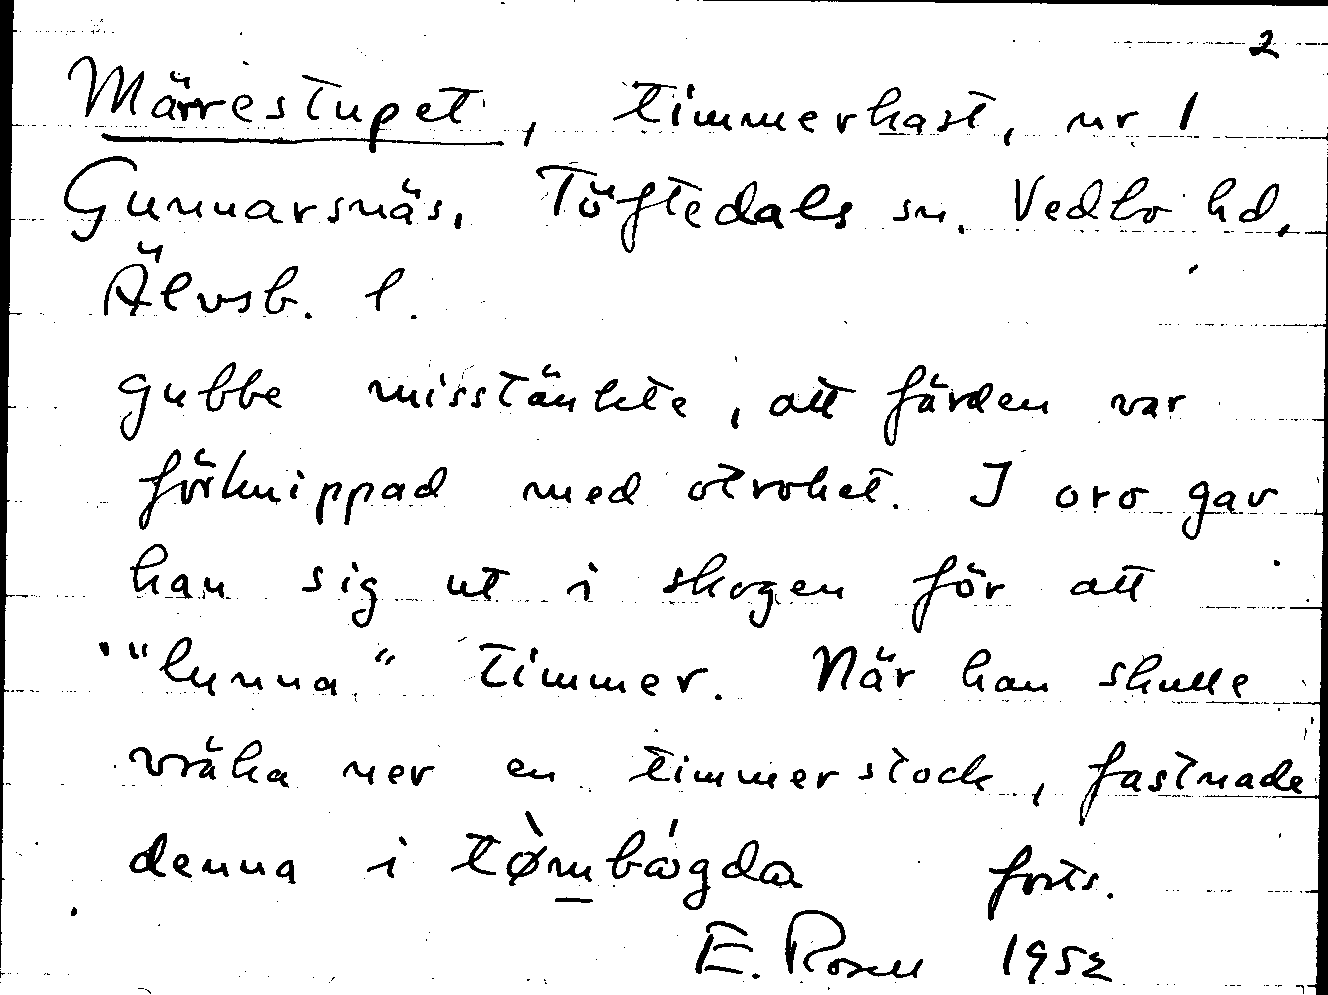 2
Märrestupet, timmerkast, nr 1
Gunnarsnäs, Töftedals sn. Vedbo hd,
Älvsb. l.
gubbe misstänkte, att färden var
förknippad med otrohet. I oro gav
han sig ut i skogen för att
"lunna" timmer. När han skulle
vräka ner en timmerstock, fastnade
denna i tø̀mbágda forts.
E. Rosell 1952